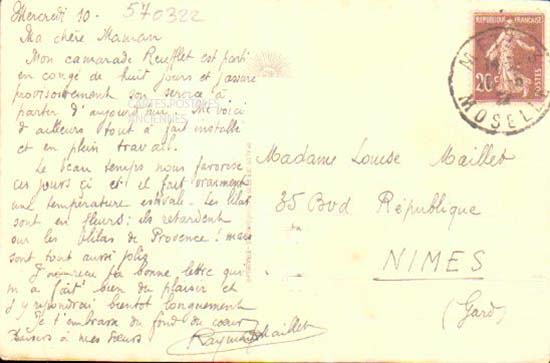 Mercredi 10.
570322
Ma chère Maman
Mon camarade Reufflet est parti
en congé de huit jours et j'assure
provisoirement son service à
partir d'aujourd'hui. Me voici
d'ailleurs tout à fait installé
et en plein travail.
Le beau temps nous favorise
ces jours ci et il fait vraiment
une température estivale. Les lilas
sont en fleurs; ils retardent
sur les lilas de Provence! mais
sont tout aussi jolis
J'ai reçu ta bonne lettre qui
m'a fait bien du plaisir et
j'y répondrai bientôt longuement
Je t'embrasse du fond du cœur
Baisers à mes sœurs
Raymond Maillet
CARTES POSTALES
ANCIENNES
REPUBLIQUE FRANÇAISE
20c
POSTES
MOSELLE
Madame Louise Maillet
35 Bvd République
NIMES
(Gard)